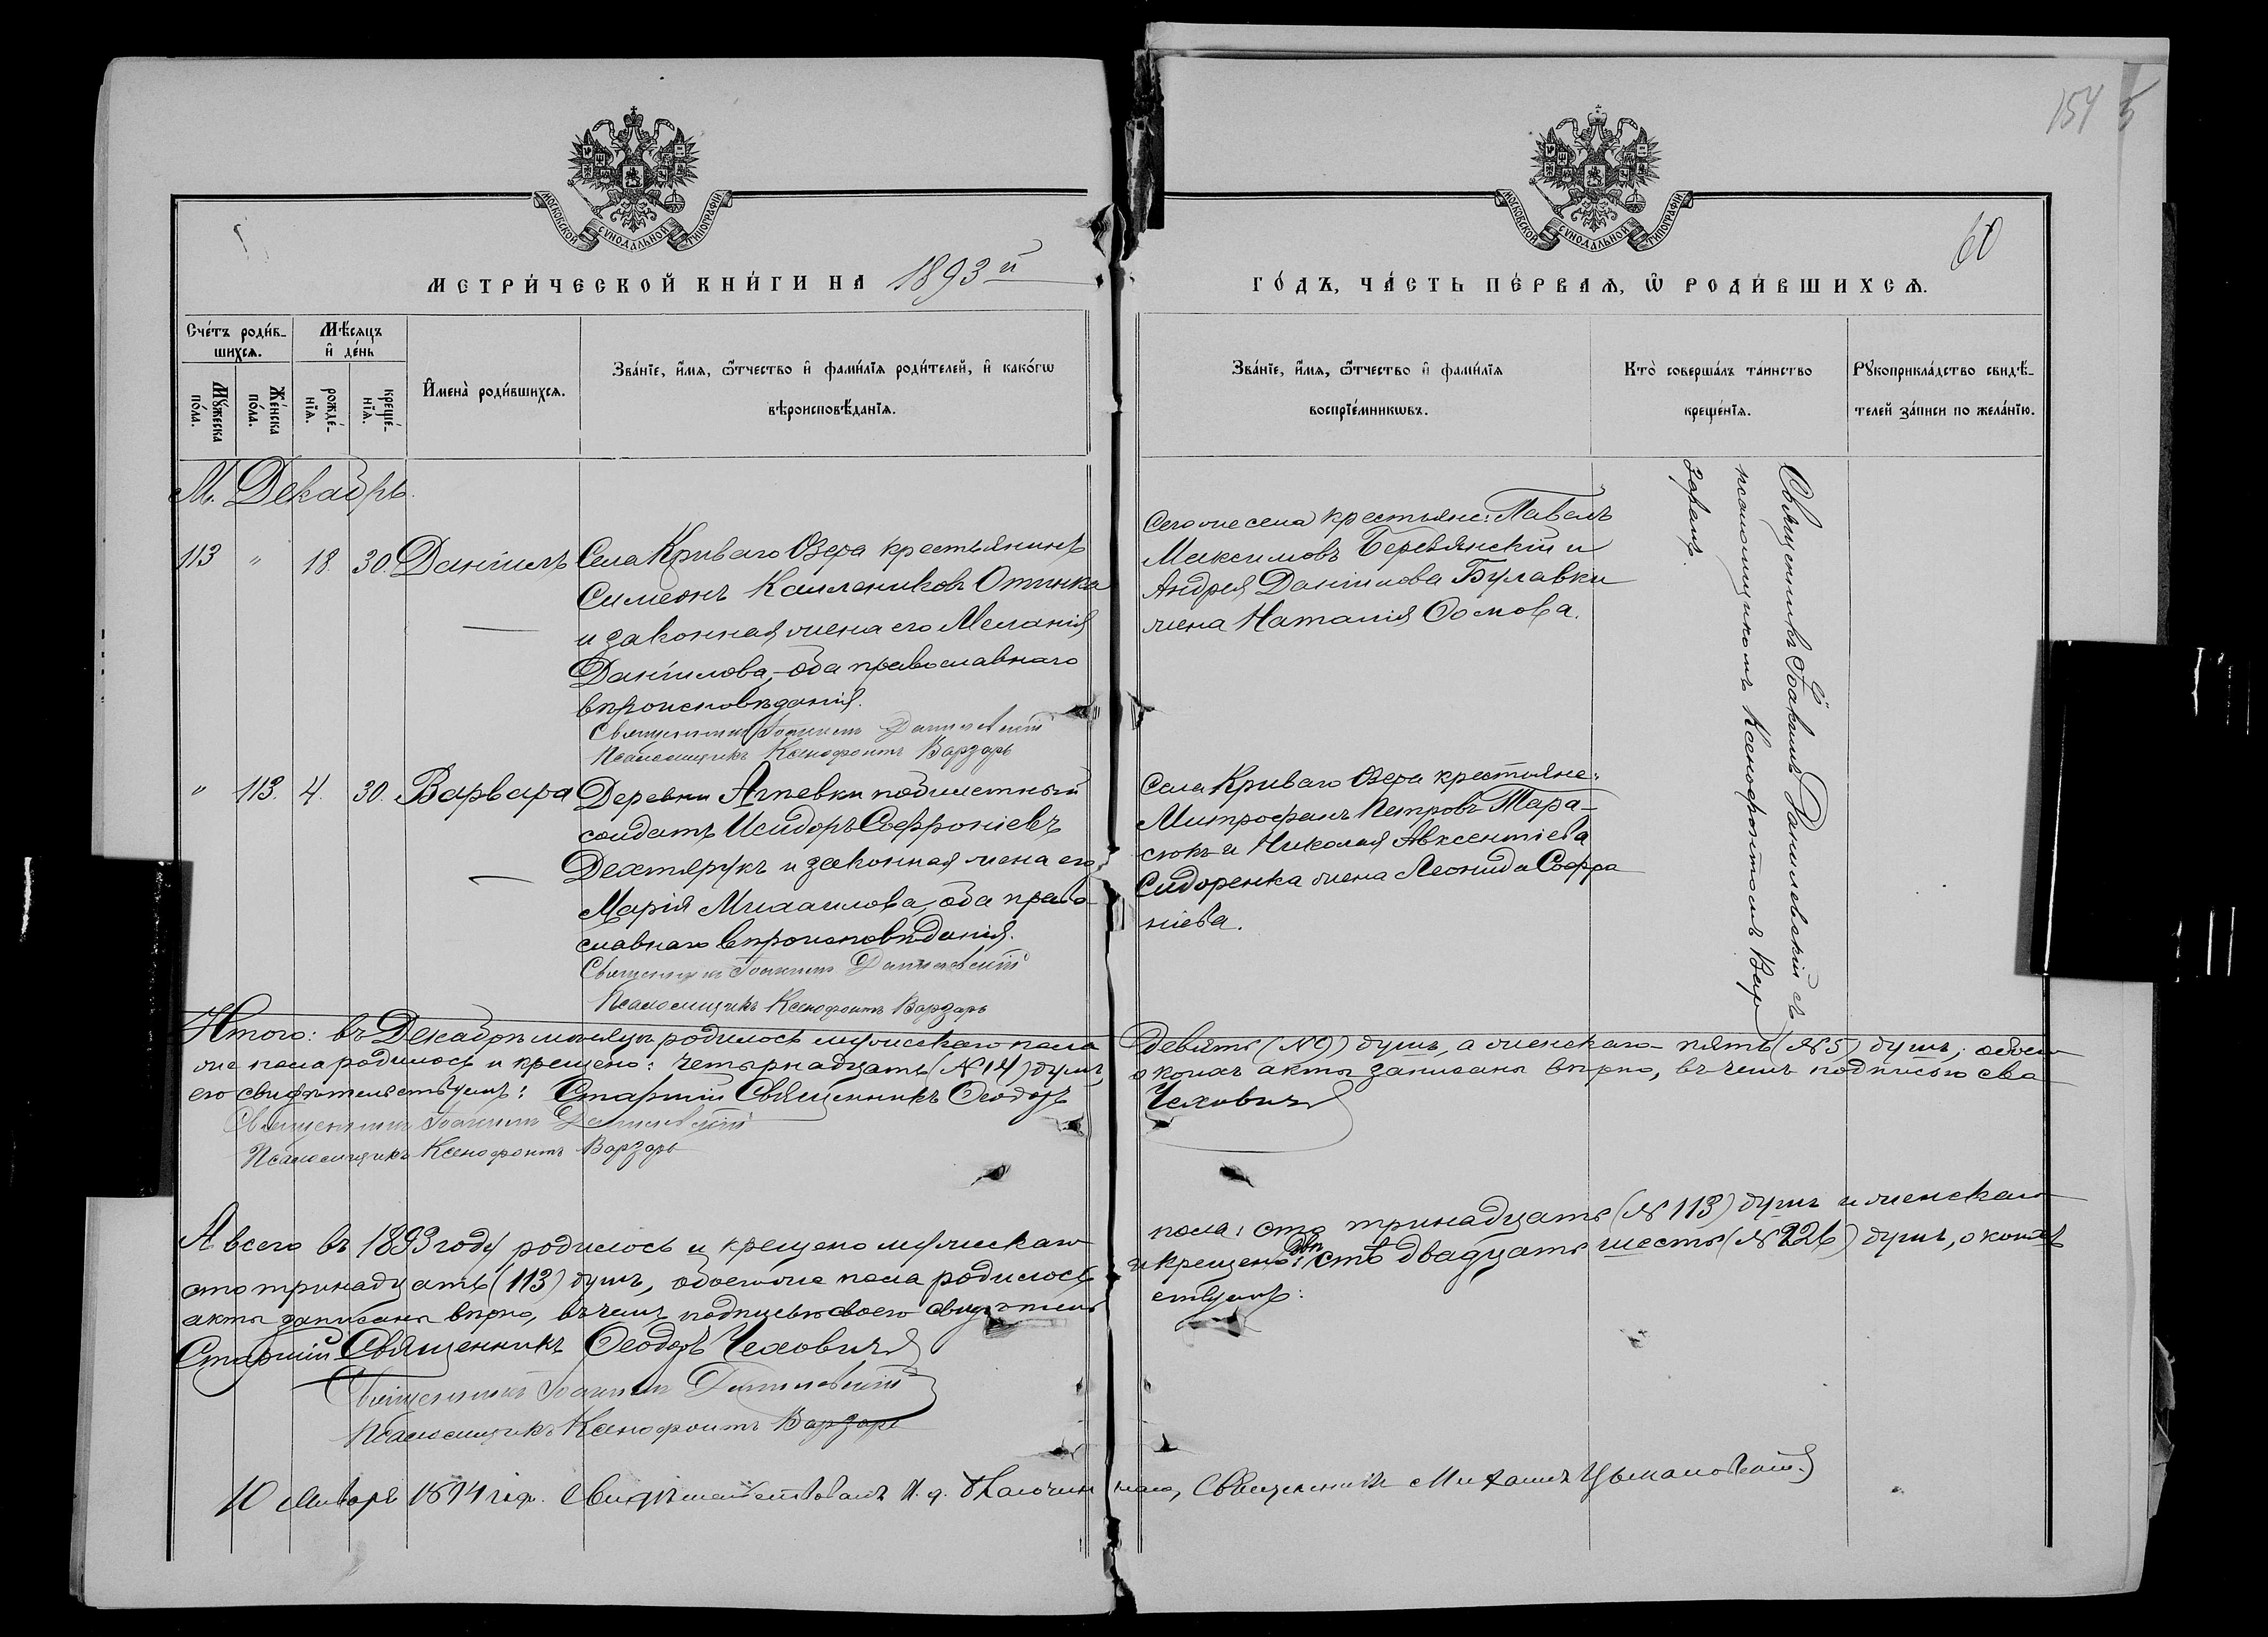 154
5
60
МОСКОВСКОЙ СѴНОДАЛЬНОЙ ТИПОГРАФІИ
МОСКОВСКОЙ СѴНОДАЛЬНОЙ ТИПОГРАФІИ
МЕТРИ́ЧЕСКОЙ КНИ́ГИ НА 1893й
ГО́ДЪ, ЧА́СТЬ ПЕ́РВАѦ, Ѽ РОДИ́ВШИХСѦ.
Сче́тъ роди́в-
шихсѧ.
Мѣ́сяцъ
и҆ де́нь
Мꙋ́жеска
по́ла.
Же́нска
по́ла.
рожде́-
нїѧ.
креще́-
нїѧ.
И҆мена̀ роди́вшихсѧ.
Зва́нїе, и҆́мѧ, ѻ҆́тчество и҆ фами́лїѧ роди́телей, и҆ како́гѡ
вѣроисповѣ́данїѧ.
Зва́нїе, и҆́мѧ, ѻ҆́тчество и҆ фами́лїѧ
воспрїе́мникѡвъ.
Кто̀ соверша́лъ та́инство
креще́нїѧ.
Рꙋкоприкла́дство свидѣ́-
телей за́писи по жела́нїю.
М. Декабрь.
113 " 18. 30. Даніилъ
Села Криваго Озера крестьянинъ
Симеонъ Каллениковъ Опинка
и законная жена его Меланія
Даніилова, оба православнаго
вѣроисповѣданія.
Священникъ Іоакимъ Данилевскій
Псаломщикъ Ксенофонтъ Варзарь
Сего же села крестьяне: Павелъ
Максимовъ Березянскій и
Андрея Даніилова Булавки
жена Наталія Ѳомова.
Священникъ Іоакимъ Данилевскій съ
псаломщикомъ Ксенофонтомъ Вар
заремъ.
" 113. 4. 30. Варвара
Деревни Агѣевки подбилетный
солдатъ Исидоръ Софроніевъ
Дехтярукъ и законная жена его
Марія Михаилова, оба право-
славнаго вѣроисповѣданія.
Священникъ Іоакимъ Данилевскій
Псаломщикъ Ксенофонтъ Варзарь
Села Криваго Озера крестьяне:
Митрофанъ Петровъ Тара-
сюкъ и Николая Авксентіева
Сидоренка жена Леонида Софро
ніева.
Итого: въ Декабрѣ мѣсяцѣ родилось мужескаго пола девять (№ 9) душъ, а женскаго пять (№ 5) душъ; обоего
же пола родилось и крещено: четырнадцать (№ 14) душъ, о коихъ акты записаны вѣрно, въ чемъ подписью сво
ею свидѣтельствуемъ: Старшій Священникъ Ѳеодоръ Чеховичъ
Священникъ Іоакимъ Данилевскій
Псаломщикъ Ксенофонтъ Варзарь
А всего въ 1893 году родилось и крещено мужескаго пола: сто тринадцать (№ 113) душъ и женскаго
сто тринадцать (113) душъ, обоего же пола родилось и крещено: двѣстѣ двадцать шесть (№ 226) душъ, о коихъ
акты записаны вѣрно, въ чемъ подписью своею свидѣтель ствуемъ:
Старшій Священникъ Ѳеодоръ Чеховичъ
Священникъ Іоакимъ Данилевскій
Псаломщикъ Ксенофонтъ Варзарь
10 Января 1894 года. Свидѣтельствовалъ И. д. Благочин наго, Священникъ Михаилъ